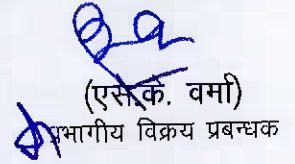 (एस.के. वर्मा)
प्रभागीय विक्रय प्रबन्धक